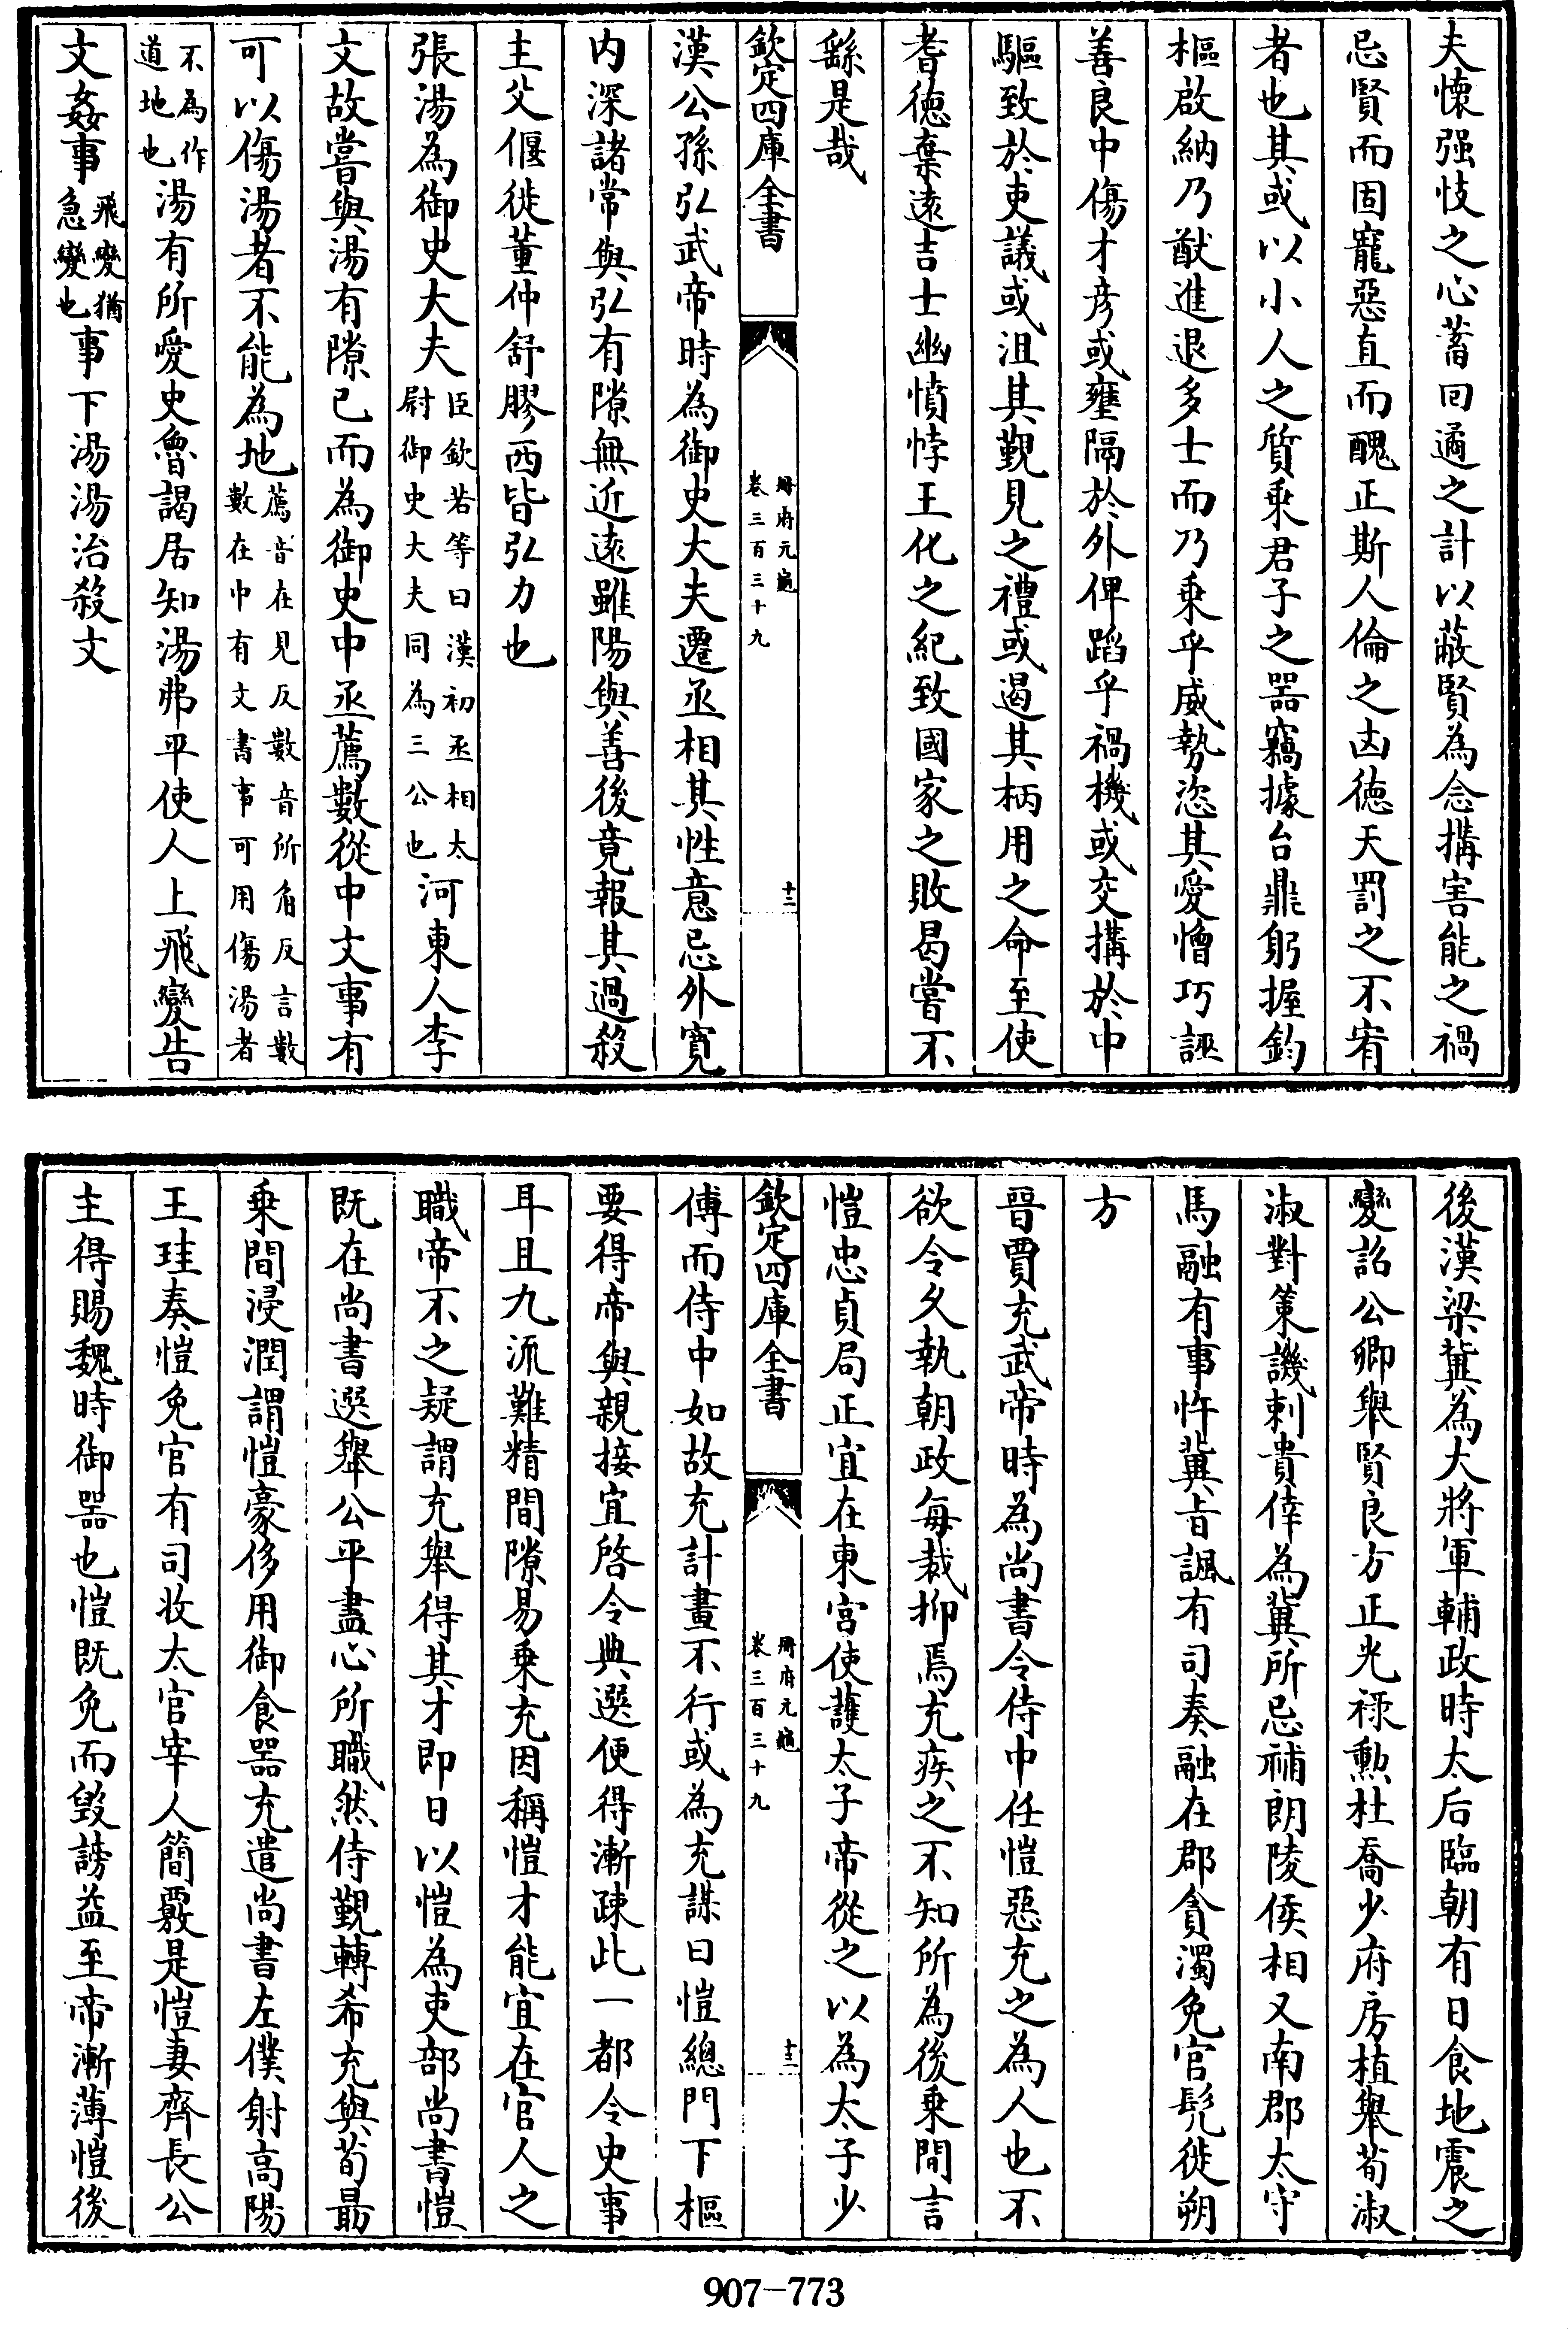 夫懷强忮之心蓄回遹之計以蔽賢為念搆害能之禍
忌賢而固寵惡直而醜正斯人倫之凶徳天罰之不宥
者也其或以小人之質乘君子之器竊據台鼎躬握鈞
樞啟納乃猷進退多士而乃乘乎威勢恣其愛憎巧誣
善良中傷才彦或壅隔於外俾蹈乎禍機或交搆於中
驅致於吏議或沮其覲見之禮或遏其柄用之命至使
耆徳棄遠吉士幽憤悖王化之紀致國家之敗曷嘗不
繇是哉
欽定四庫全書
冊府元龜
卷三百三十九
十二
漢公孫弘武帝時為御史大夫遷丞相其性意忌外寛
内深諸常與弘有隙無近遠雖陽與善後竟報其過殺
主父偃徙董仲舒膠西皆弘力也
張湯為御史大夫臣欽若等曰漢初丞相太尉御史大夫同為三公也河東人李
文故嘗與湯有隙已而為御史中丞薦數從中文事有
可以傷湯者不能為地薦音在見反數音所角反言數數在中有文書事可用傷湯者
不為作道地也湯有所愛史魯謁居知湯弗平使人上飛變告
文姦事飛變猶急變也事下湯湯治殺文
後漢梁冀為大將軍輔政時太后臨朝有日食地震之
變詔公卿舉賢良方正光祿勲杜喬少府房植舉荀淑
淑對策譏刺貴倖為冀所忌補朗陵侯相又南郡太守
馬融有事忤冀旨諷有司奏融在郡貪濁免官髠徙朔
方
晉賈充武帝時為尚書令侍中任愷惡充之為人也不
欲令久執朝政每裁抑焉充疾之不知所為後乗間言
愷忠貞局正宜在東宫使護太子帝從之以為太子少
欽定四庫全書
冊府元龜
卷三百三十九
十三
傅而侍中如故充計畫不行或為充謀曰愷總門下樞
要得帝與親接宜啓令典選便得漸疎此一都令史事
耳且九流難精間隙易乗充因稱愷才能宜在官人之
職帝不之疑謂充舉得其才即日以愷為吏部尚書愷
既在尚書選舉公平盡心所職然侍覲轉希充與荀勗
乗間浸潤謂愷豪侈用御食器充遣尚書左僕射高陽
王珪奏愷免官有司收太官宰人簡覈是愷妻齊長公
主得賜魏時御器也愷既免而毀謗益至帝漸薄愷後
907-773